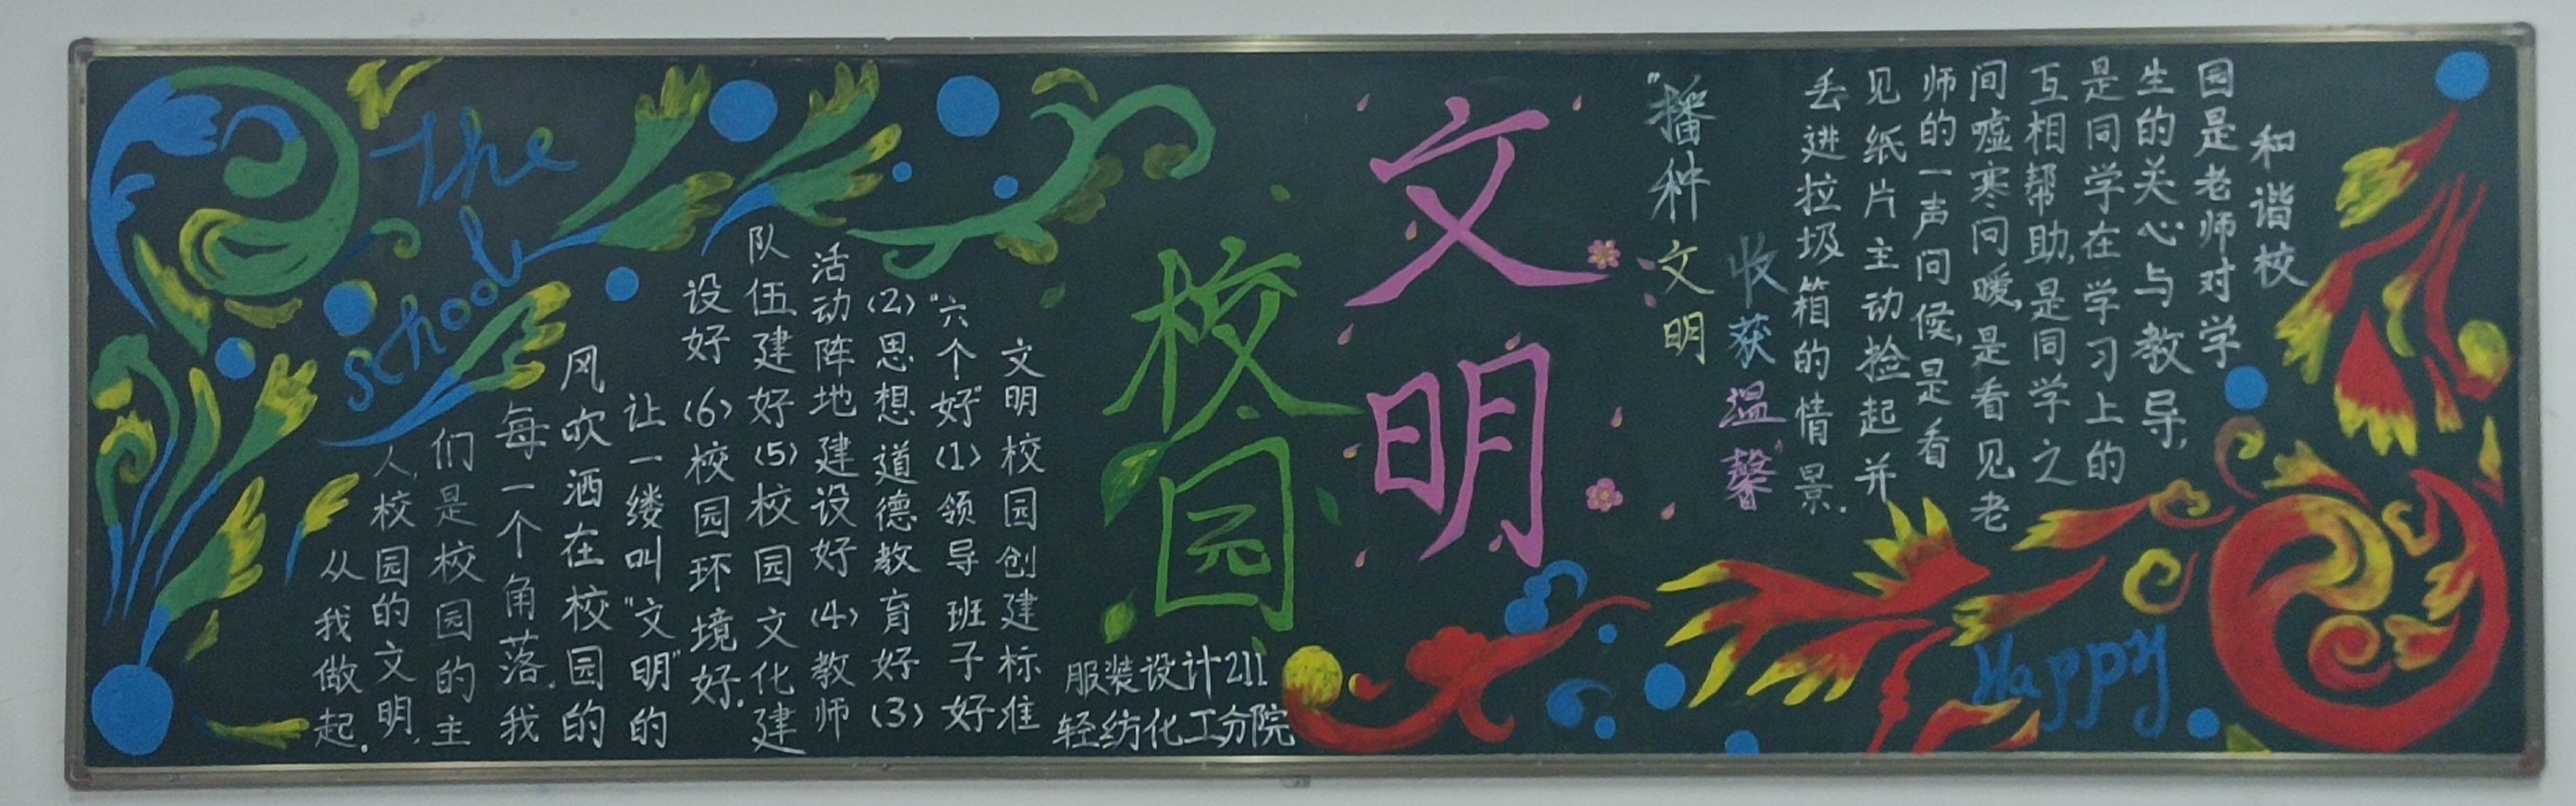 和谐校
园是老师对学
生的关心与教导,
是同学在学习上的
互相帮助,是同学之
间嘘寒问暖,是看见老
师的一声问候,是看
见纸片主动捡起并
丢进垃圾箱的情景.
"播种文明
收获温馨"
文明
校园
文明校园创建标准
"六个好"(1)领导班子好
(2)思想道德教育好(3)
活动阵地建设好(4)教师
队伍建好(5)校园文化建
设好(6)校园环境好.
让一缕叫"文明"的
风吹洒在校园的
每一个角落.我
们是校园的主
人,校园的文明,
从我做起.
服装设计211
轻纺化工分院
The
school
Happy